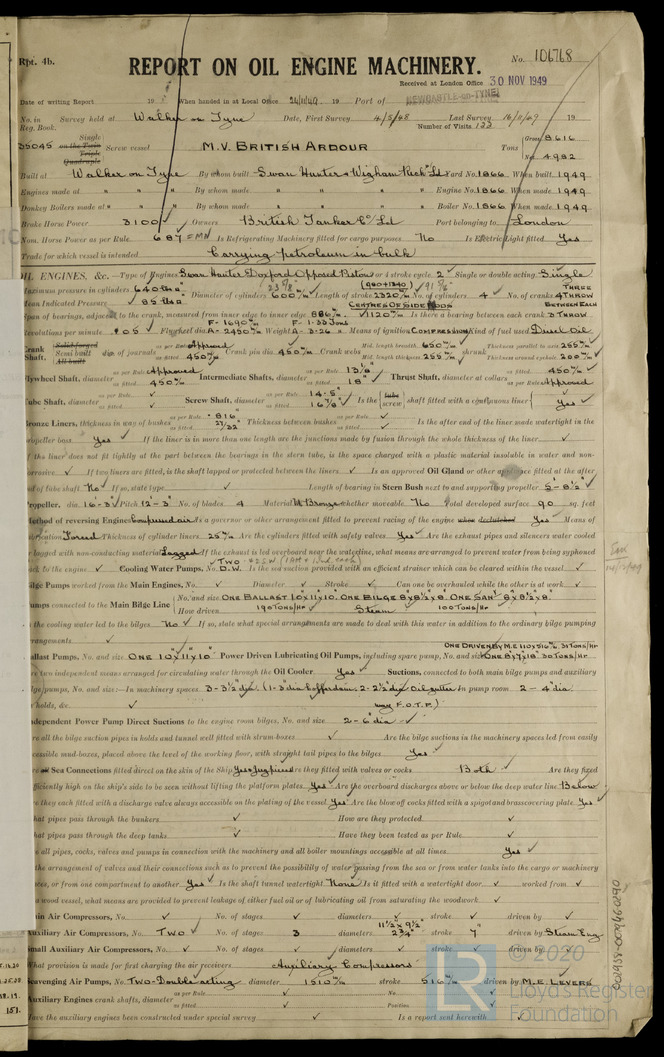 Rpt. 4b.
No. 106768
REPORT ON OIL ENGINE MACHINERY.
Received at London Office 30 NOV 1949
Date of writing Report 19 When handed in at Local Office 24/11/49 19 Port of NEWCASTLE-on-TYNE
No. in Survey held at Walker on Tyne Date, First Survey 4/5/48 Last Survey 16/11/49 19
Reg. Book. Number of Visits 122
35045 Single on the Twin Triple Quadruple Screw vessel M.V. BRITISH ARDOUR Tons Gross 8616 Net 4982
Built at Walker on Tyne By whom built Swan Hunter & Wigham Rich'n Ld Yard No. 1866 When built 1949
Engines made at " " " By whom made " " " Engine No. 1866 When made 1949
Donkey Boilers made at " " " By whom made " " " Boiler No. 1866 When made 1949
Brake Horse Power 3100 Owners British Tanker Co Ld Port belonging to London
Nom. Horse Power as per Rule 687 = MN Is Refrigerating Machinery fitted for cargo purposes No Is Electric Light fitted Yes
Trade for which vessel is intended Carrying petroleum in bulk
OIL ENGINES, &c. —Type of Engines Swan Hunter Doxford Opposed Piston 2 or 4 stroke cycle 2 Single or double acting Single
Maximum pressure in cylinders 640 lbs Diameter of cylinders 600 m/m Length of stroke 2320 m/m No. of cylinders 4 No. of cranks 4 THROW
Mean Indicated Pressure 85 lbs
Span of bearings, adjacent to the crank, measured from inner edge to inner edge 886 m/m Is there a bearing between each crank
Revolutions per minute 105 Flywheel dia. Weight Means of ignition COMPRESSION Kind of fuel used Diesel Oil
Crank Shaft, dia. of journals as per Rule Approved as fitted 450 m/m Crank pin dia. 450 m/m Crank webs Mid. length breadth 650 m/m Mid. length thickness 255 m/m shrunk Thickness parallel to axis 255 m/m Thickness around eyehole 200 m/m
Flywheel Shaft, diameter as per Rule Approved as fitted 450 m/m Intermediate Shafts, diameter as per Rule as fitted 18" Thrust Shaft, diameter at collars as per Rule Approved as fitted 450 m/m
Tube Shaft, diameter as per Rule as fitted Screw Shaft, diameter as per Rule 14.5" as fitted 16 7/8" Is the tube screw shaft fitted with a continuous liner Yes
Bronze Liners, thickness in way of bushes as per Rule .816" as fitted 27/32" Thickness between bushes as per Rule as fitted Is the after end of the liner made watertight in the
propeller boss Yes If the liner is in more than one length are the junctions made by fusion through the whole thickness of the liner
If the liner does not fit tightly at the part between the bearings in the stern tube, is the space charged with a plastic material insoluble in water and non-
corrosive If two liners are fitted, is the shaft lapped or protected between the liners Is an approved Oil Gland or other appliance fitted at the after
end of tube shaft No If so, state type Length of bearing in Stern Bush next to and supporting propeller 5'-8 1/2"
Propeller, dia. 16'-3" Pitch 12'-3" No. of blades 4 Material M. Bronze whether moveable No Total developed surface 90 sq. feet
Method of reversing Engines Compressed air Is a governor or other arrangement fitted to prevent racing of the engine when declutched Yes Means of
lubrication Forced Thickness of cylinder liners 25 m/m Are the cylinders fitted with safety valves Yes Are the exhaust pipes and silencers water cooled
or lagged with non-conducting material Lagged If the exhaust is led overboard near the waterline, what means are arranged to prevent water from being syphoned
back to the engine Cooling Water Pumps, No. Is the sea suction provided with an efficient strainer which can be cleared within the vessel
Bilge Pumps worked from the Main Engines, No. Diameter Stroke Can one be overhauled while the other is at work
Pumps connected to the Main Bilge Line No. and size ONE BALLAST 10"x11"x10". ONE BILGE 8"x8 1/2"x8". ONE SAN'Y 8"x8 1/2"x8".
How driven 190 TONS/HR Steam 100 TONS/HR
Is the cooling water led to the bilges No If so, state what special arrangements are made to deal with this water in addition to the ordinary bilge pumping
arrangements ONE DRIVEN BY M.E 110x516 m/m 35 TONS/HR
Ballast Pumps, No. and size ONE 10"x11"x10" Power Driven Lubricating Oil Pumps, including spare pump, No. and size ONE 8"x7"x18" 30 TONS/HR
Are two independent means arranged for circulating water through the Oil Cooler Yes Suctions, connected to both main bilge pumps and auxiliary
bilge pumps, No. and size:—In machinery spaces 3-3 1/2" dia (1-3" dia Cofferdam, 2-2 1/2" dia Oil gutter In pump room 2-4" dia
holds, &c. way F.O.T.P.)
Independent Power Pump Direct Suctions to the engine room bilges, No. and size 2-6" dia
Are all the bilge suction pipes in holds and tunnel well fitted with strum boxes Are the bilge suctions in the machinery spaces led from easily
accessible mud-boxes, placed above the level of the working floor, with straight tail pipes to the bilges Yes
Are all Sea Connections fitted direct on the skin of the Ship Are they fitted with valves or cocks Both Are they fixed
sufficiently high on the ship's side to be seen without lifting the platform plates Yes Are the overboard discharges above or below the deep water line Below
Are they each fitted with a discharge valve always accessible on the plating of the vessel Yes Are the blow off cocks fitted with a spigot and brass covering plate Yes
What pipes pass through the bunkers How are they protected
What pipes pass through the deep tanks Have they been tested as per Rule
Are all pipes, cocks, valves and pumps in connection with the machinery and all boiler mountings accessible at all times Yes
Is the arrangement of valves and their connections such as to prevent the possibility of water passing from the sea or from water tanks into the cargo or machinery
spaces, or from one compartment to another Yes Is the shaft tunnel watertight None Is it fitted with a watertight door worked from
If a wood vessel, what means are provided to prevent leakage of either fuel oil or of lubricating oil from saturating the woodwork
Main Air Compressors, No. No. of stages diameters stroke driven by
Auxiliary Air Compressors, No. TWO No. of stages 3 diameters 11 1/2" x 9 1/2" 2 3/4" stroke 7" driven by Steam Eng
Small Auxiliary Air Compressors, No. No. of stages diameters stroke driven by
What provision is made for first charging the air receivers Auxiliary Compressors
Scavenging Air Pumps, No. TWO-Double acting diameter 1510 m/m stroke 516 m/m driven by M.E. LEVERS
Auxiliary Engines crank shafts, diameter as per Rule as fitted No. Position
Have the auxiliary engines been constructed under special survey Is a report sent herewith
© 2020
LR
Lloyd's Register
Foundation